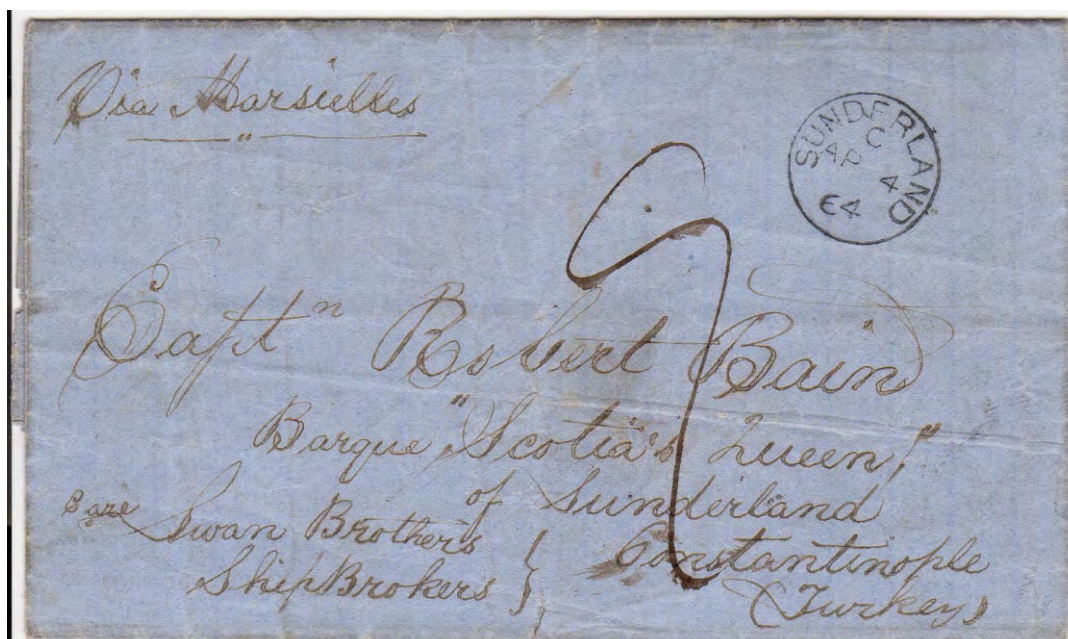 Via Marsielles
SUNDERLAND
C
AP 4
64
Captn Robert Bain
Barque "Scotia's Queen"
of Sunderland
Care Swan Brothers
ShipBrokers } Constantinople
(Turkey)